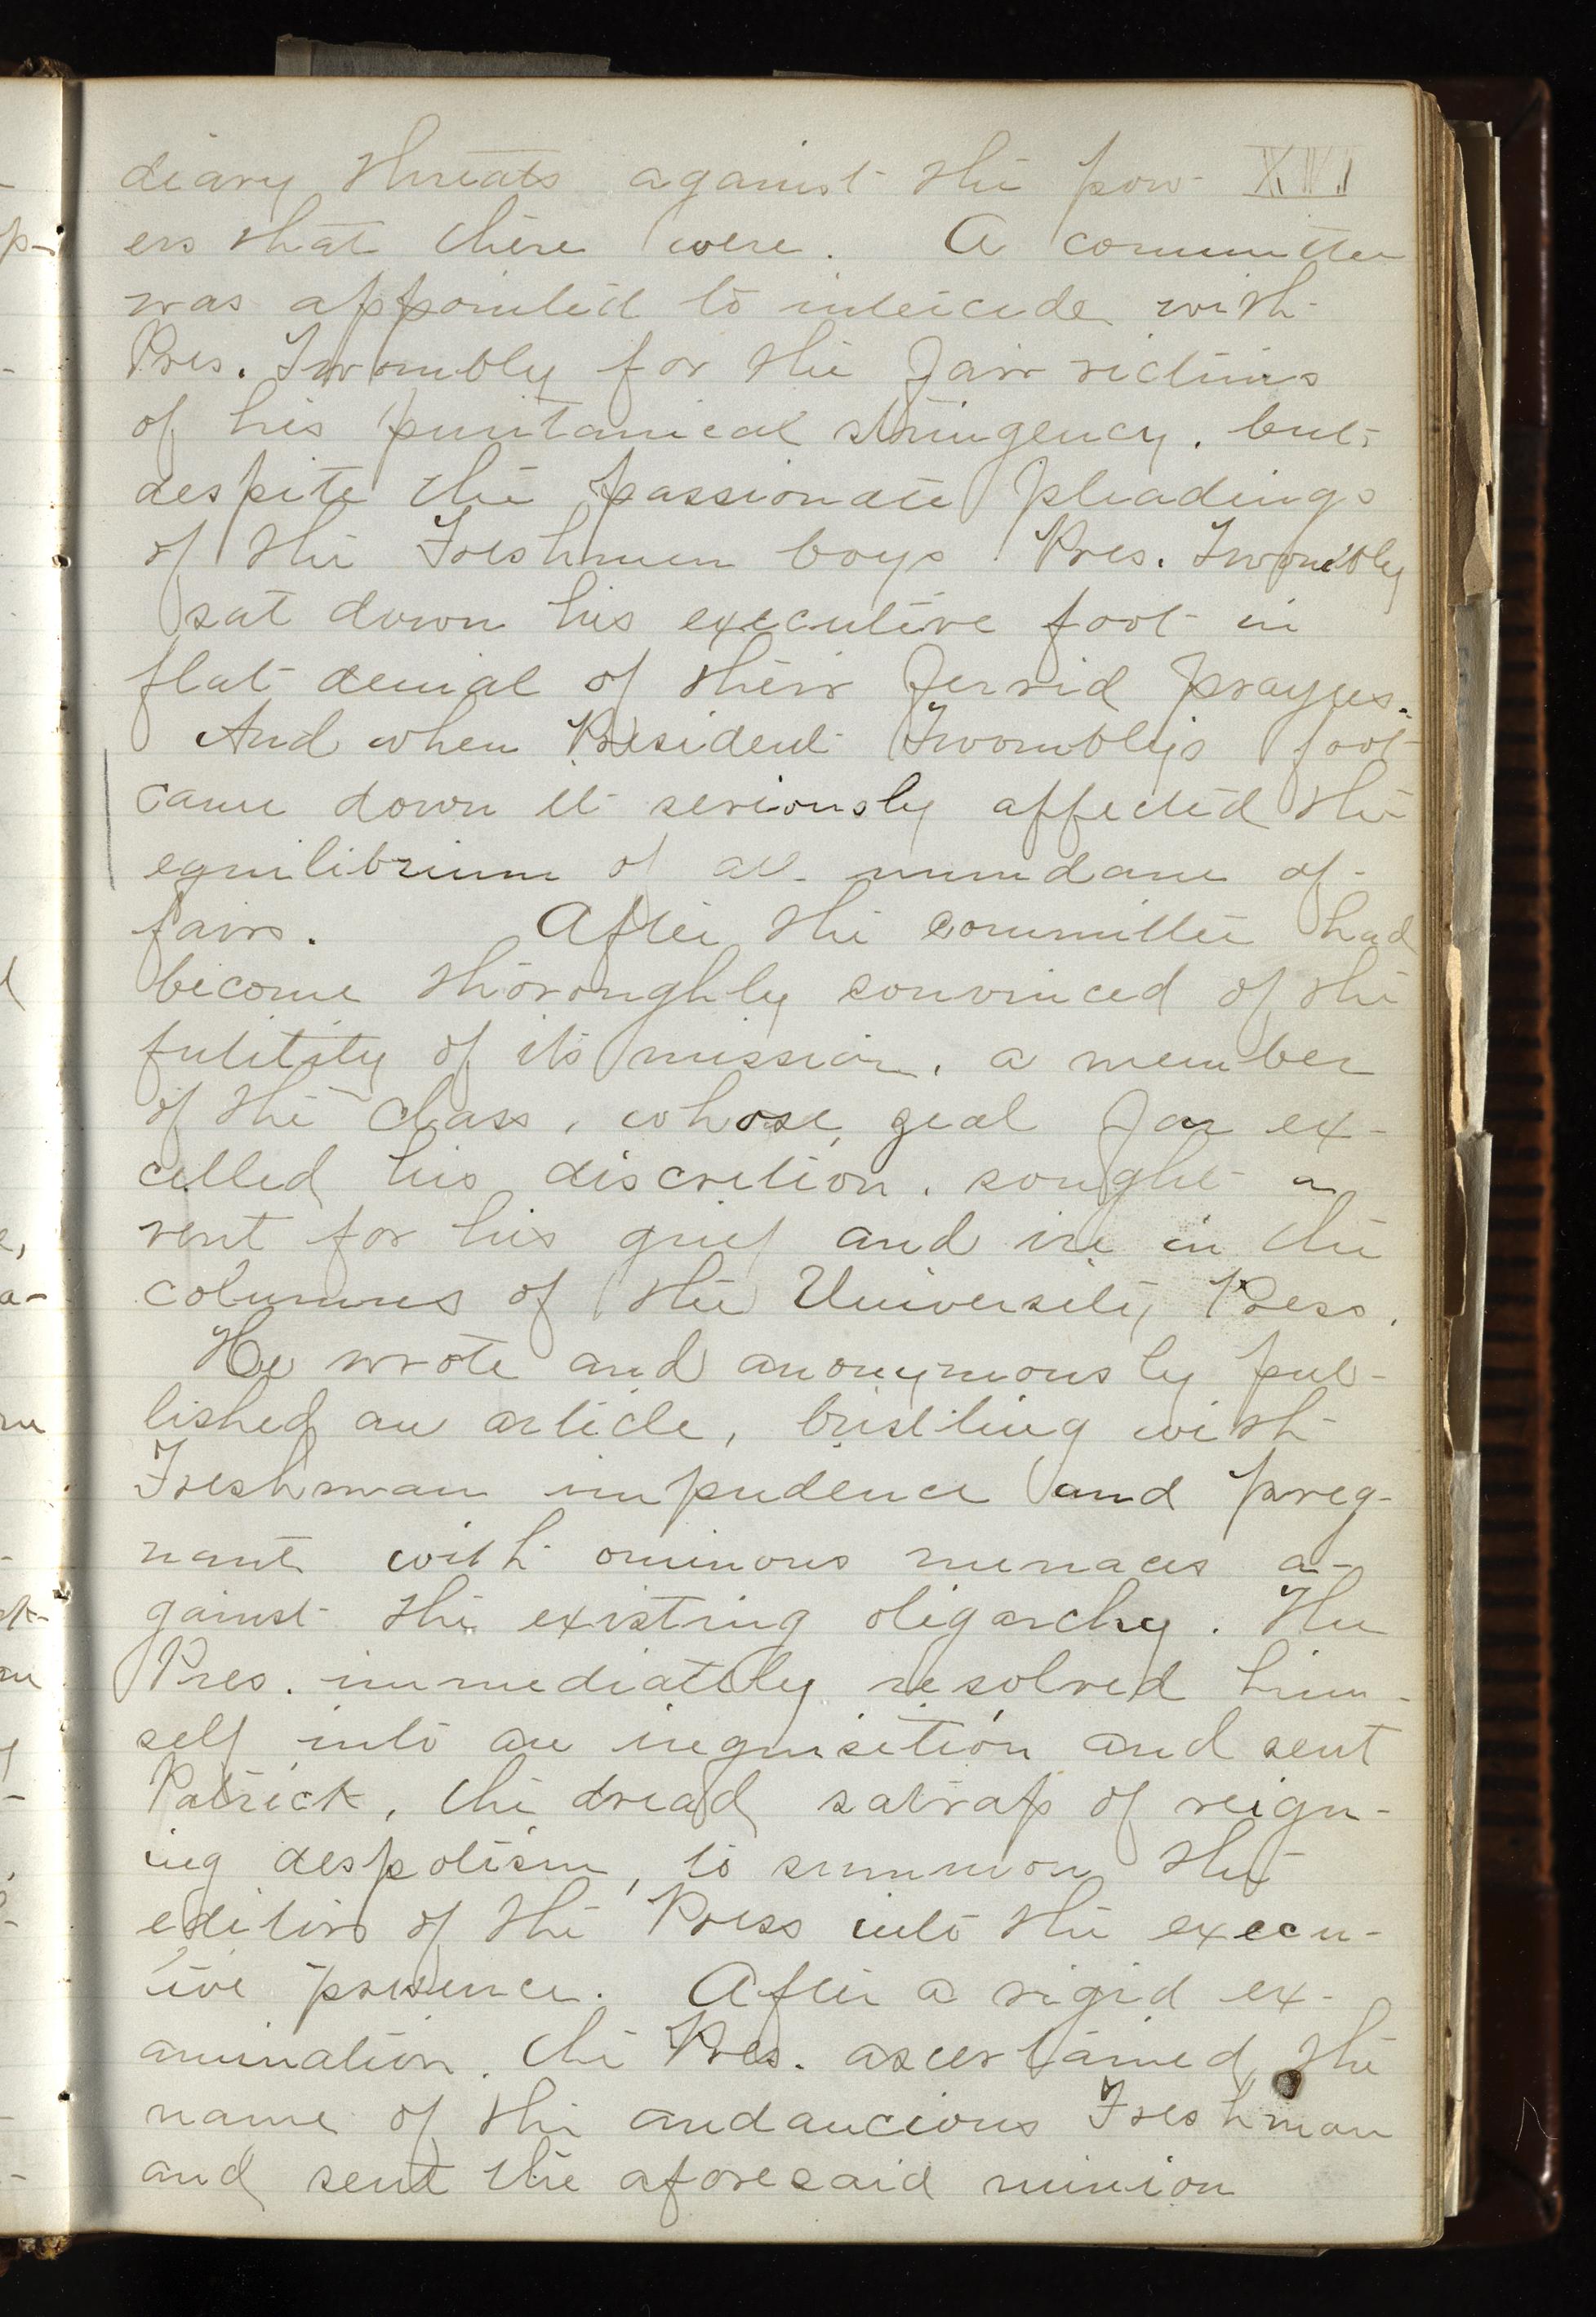 diary threats against the pow- XVI
ers that there were. A committee
was appointed to intercede with
Pres. Twombly for the fair victims
of his puritanical stringency, but,
despite the passionate pleadings
of the Freshmen boys Pres. Twombly
sat down his executive foot in
flat denial of their fervid prayers.
And when President Twombly's foot
came down it seriously affected the
equilibrium of all mundane af-
fairs. After the committee had
become thoroughly convinced of the
futility of its mission, a member
of the class, whose zeal far ex-
celled his discretion, sought a
vent for his grief and ire in the
columns of the University Press.
He wrote and anonymously pub-
lished an article, bristling with
Freshman impudence and preg-
nant with ominous menaces a-
gainst the existing oligarchy. The
Pres. immediately resolved him-
self into an inquisition and sent
Patrick, the dread satrap of reign-
ing despotism, to summon the
editors of the Press into the execu-
tive presence. After a rigid ex-
amination, the Pres. ascertained the
name of the audaucious Freshman
and sent the aforesaid minion